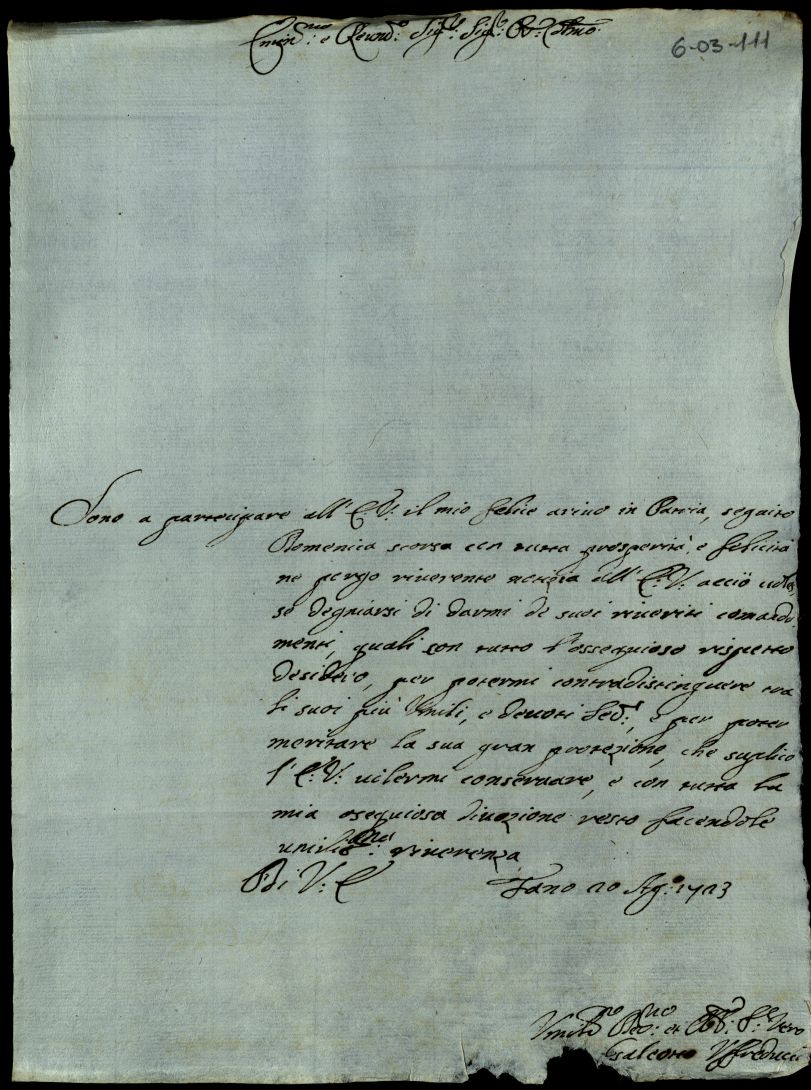 Emin.mo: e Reund.o: Sig.re: Sig.re P.ne: Colmo
6-03-111
Sono a partecipare all' E: V: il mio felice arivo in Patria, seguito
Domenica scorsa con tutta prosperità, e felicità
ne porgo riverente notizia all' E: V: acciò voles
se degniarsi di darmi de suoi riveriti comanda
menti, quali con tutto l'ossequioso rispetto
desidero, per potermi contradistinguere tra
li suoi più Vmili, e devoti Ser.i, e per poter
meritare la sua gran protezione, che suplico
l' E: V: vilermi conservare, e con tutta la
mia osequiosa divozione resto facendole
umiliss.ma: riverenza
Di V: E
Fano 20 Ag.o: 1723
Vmilis.mo Deuo.mo: et Obb.o: S.re: Vero
Galeotto Vffreducci